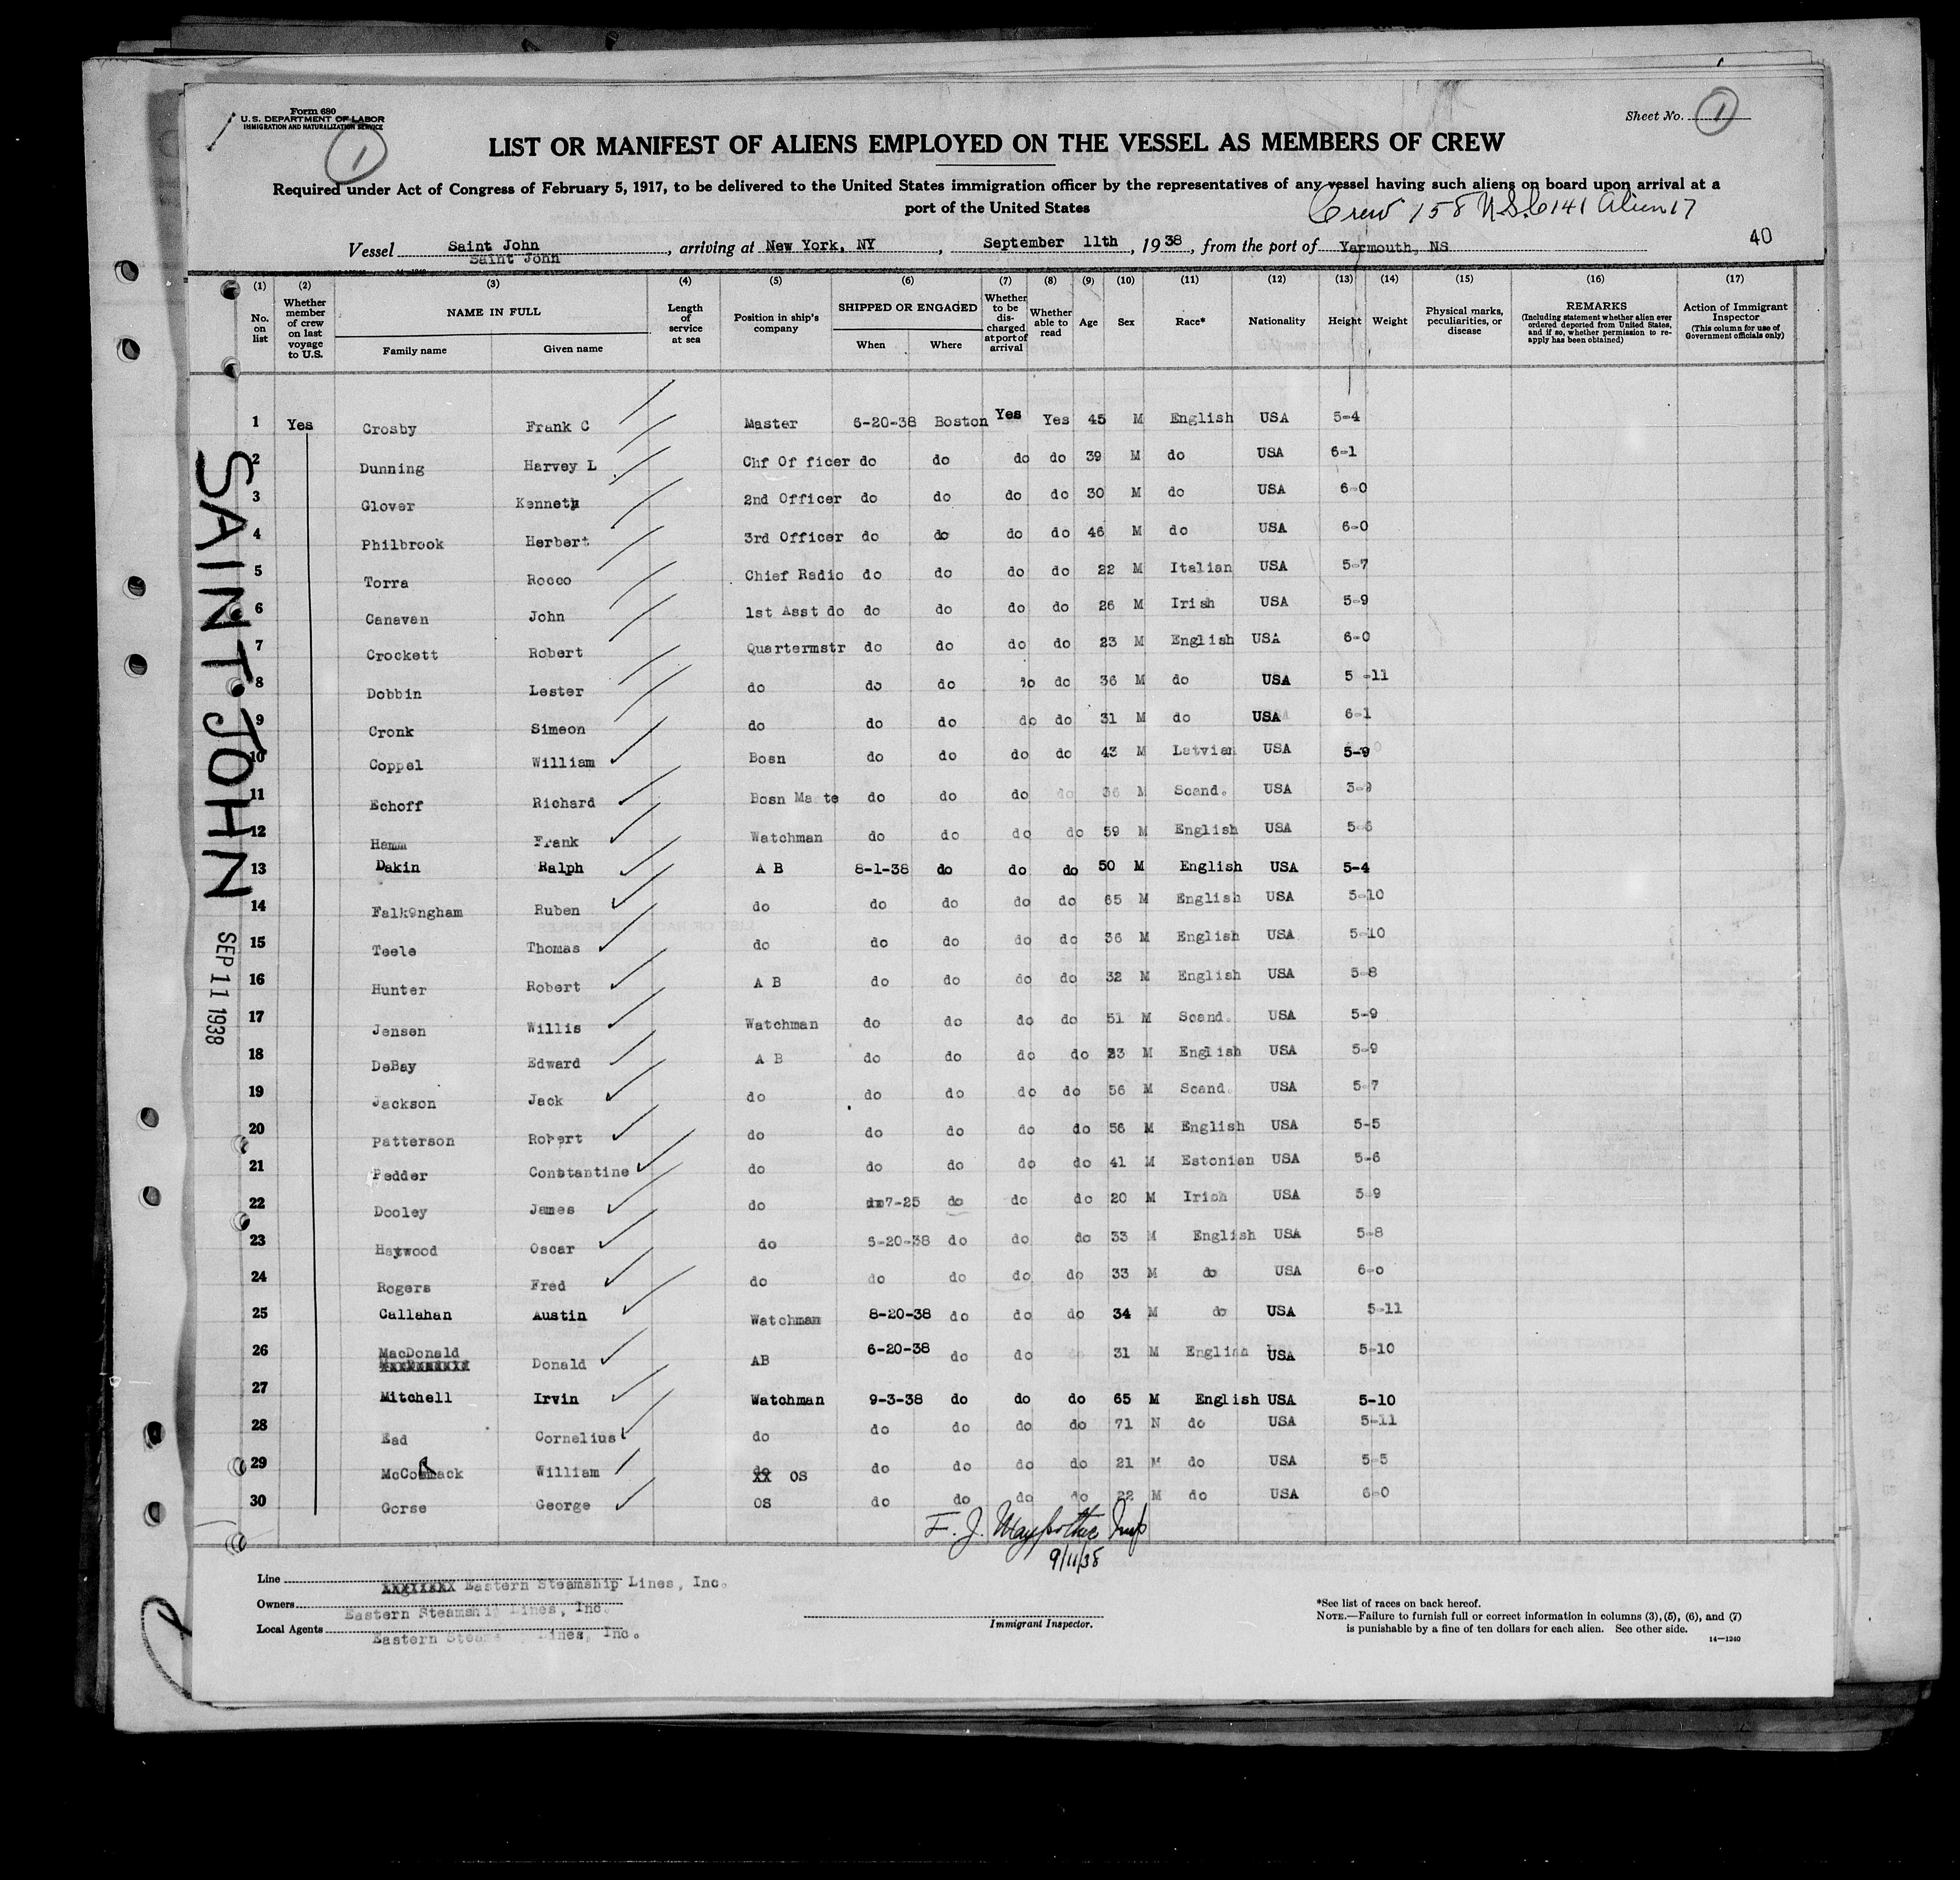 Form 680
U.S. DEPARTMENT OF LABOR
IMMIGRATION AND NATURALIZATION SERVICE
1
Sheet No. 1
LIST OR MANIFEST OF ALIENS EMPLOYED ON THE VESSEL AS MEMBERS OF CREW
Required under Act of Congress of February 5, 1917, to be delivered to the United States immigration officer by the representatives of any vessel having such aliens on board upon arrival at a
port of the United States
Crew 158 U.S.C 141 Alien 17
Vessel Saint John, arriving at New York, NY, September 11th, 1938, from the port of Yarmouth, NS 40
Saint John
(1) (2) (3) (4) (5) (6) (7) (8) (9) (10) (11) (12) (13) (14) (15) (16) (17)
No. on list
Whether member of crew on last voyage to U.S.
NAME IN FULL
Family name Given name
Length of service at sea
Position in ship's company
SHIPPED OR ENGAGED
When Where
Whether to be discharged at port of arrival
Whether able to read
Age Sex Race* Nationality Height Weight
Physical marks, peculiarities, or disease
REMARKS
(Including statement whether alien ever ordered deported from United States, and if so, whether permission to reapply has been obtained)
Action of Immigrant Inspector
(This column for use of Government officials only)
1 Yes Crosby Frank C Master 6-20-38 Boston Yes Yes 45 M English USA 5-4
2 Dunning Harvey L Chf Of ficer do do do do 39 M do USA 6-1
3 Glover Kenneth 2nd Officer do do do do 30 M do USA 6-0
4 Philbrook Herbert 3rd Officer do do do do 46 M do USA 6-0
5 Torra Rocco Chief Radio do do do do 22 M Italian USA 5-7
6 Canavan John 1st Asst do do do do do 26 M Irish USA 5-9
7 Crockett Robert Quartermstr do do do do 23 M English USA 6-0
8 Dobbin Lester do do do do do 36 M do USA 5 -11
9 Cronk Simeon do do do do do 31 M do USA 6-1
10 Coppel William Bosn do do do do 43 M Latvian USA 5-9
11 Echoff Richard Bosn Ma te do do do do 36 M Scand. USA
12 Hamm Frank Watchman do do do do 59 M English USA 5-6
13 Dakin Ralph A B 8-1-38 do do do 50 M English USA 5-4
14 Falk9ngham Ruben do do do do do 65 M English USA 5-10
15 Teele Thomas do do do do do 36 M English USA 5-10
16 Hunter Robert A B do do do do 32 M English USA 5-8
17 Jensen Willis Watchman do do do do 51 M Scand. USA 5-9
18 DeBay Edward A B do do do do 23 M English USA 5-9
19 Jackson Jack do do do do do 56 M Scand. USA 5-7
20 Patterson Robert do do do do do 56 M English USA 5-5
21 Pedder Constantine do do do do do 41 M Estonian USA 5-6
22 Dooley James do 7-25 do do do 20 M Irish USA 5-9
23 Haywood Oscar do 6-20-38 do do do 33 M English USA 5-8
24 Rogers Fred do do do do do 33 M do USA 6-0
25 Callahan Austin Watchman 8-20-38 do do do 34 M do USA 5-11
26 MacDonald Donald AB 6-20-38 do do do 31 M English USA 5-10
27 Mitchell Irvin Watchman 9-3-38 do do do 65 M English USA 5-10
28 Ead Cornelius do do do do do 71 N do USA 5-11
29 McCormack William do OS do do do do 21 M do USA 5-5
30 Gorse George OS do do do do 22 M do USA 6-0
SAINT JOHN
SEP 11 1938
F. J. Insp
9/11/38
Line Eastern Steamship Lines, Inc.
Owners Eastern Steamship Lines, Inc.
Local Agents Eastern Steams Lines, Inc.
Immigrant Inspector.
*See list of races on back hereof.
NOTE.—Failure to furnish full or correct information in columns (3), (5), (6), and (7)
is punishable by a fine of ten dollars for each alien. See other side.
14—1240